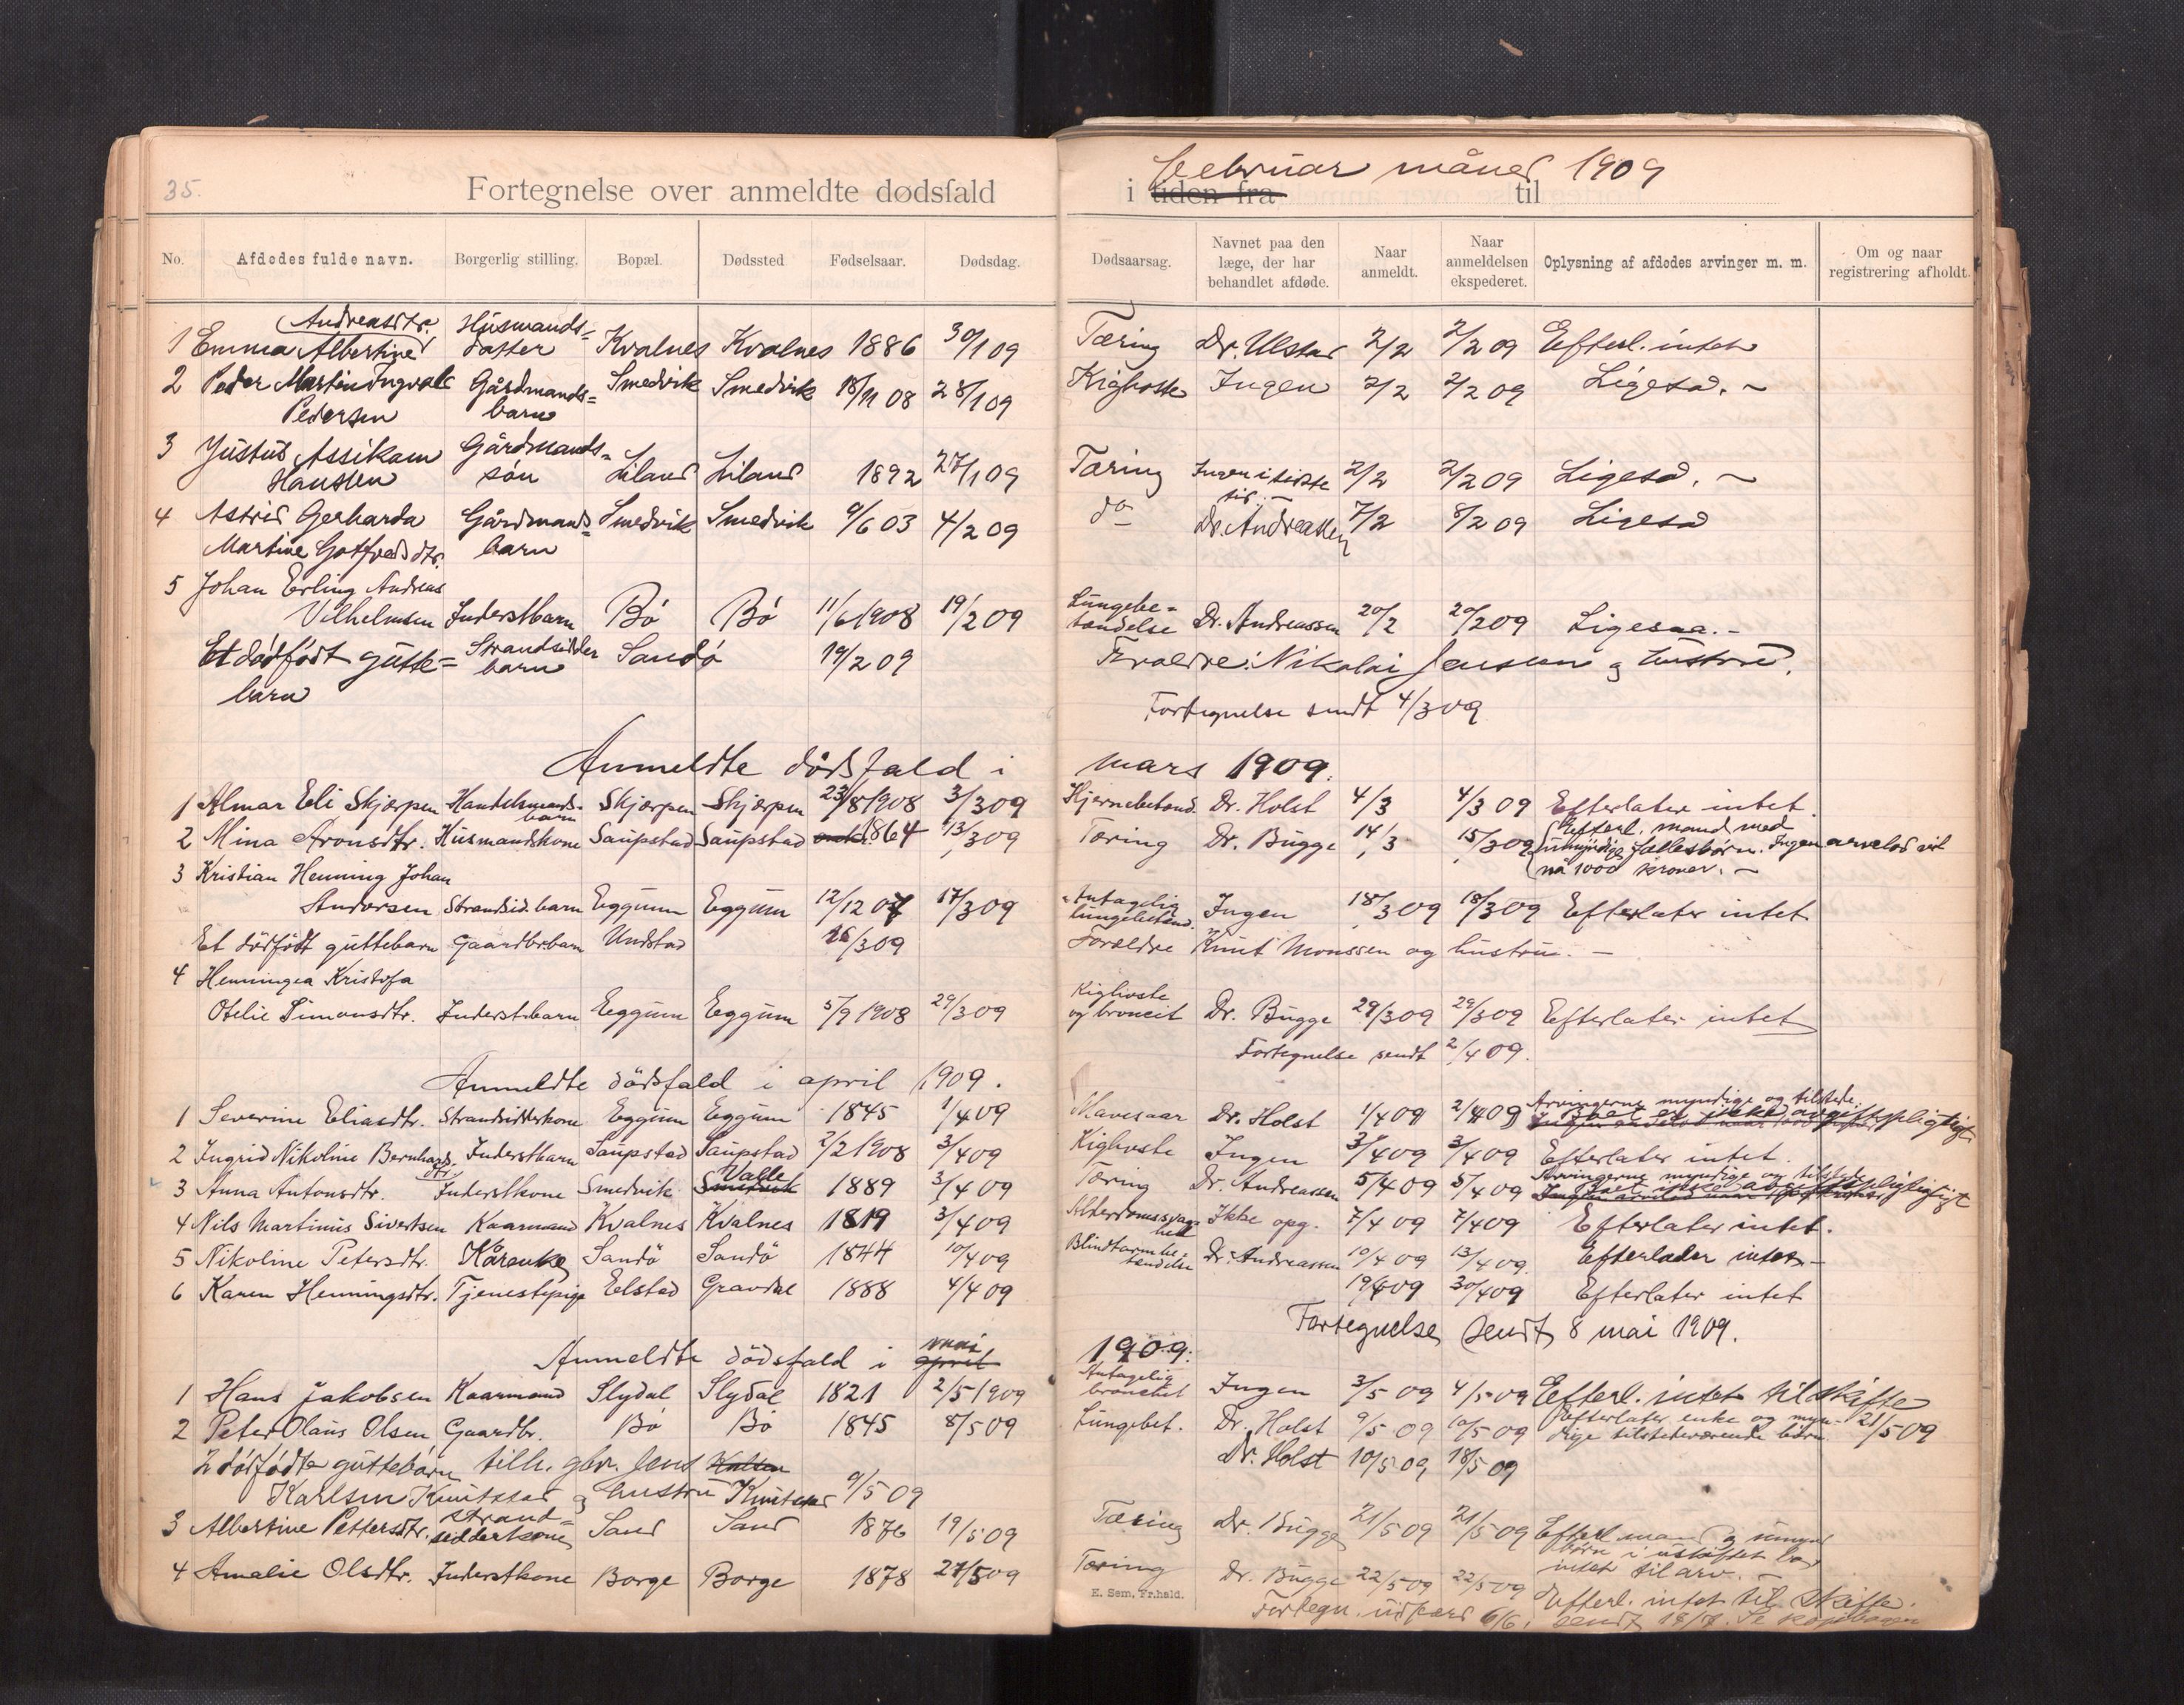 35.
Fortegnelse over anmeldte dødsfald
i tiden fra februar måned 1909 til
No. Afdødes fulde navn. Borgerlig stilling. Bopæl. Dødssted Fødselsaar. Dødsdag. Dødsaarsag. Navnet paa den læge, der har behandlet afdøde. Naar anmeldt. Naar anmeldelsen ekspederet. Oplysning af afdødes arvinger m. m. Om og naar registrering afholdt.
1 Emma Albertine Andreasdtr. Husmands=datter Kvalnes Kvalnes 1886 30/1 09 Tæring Dr. Ulstad 2/2 2/2 09 Efterl. intet
2 Peder Martin Ingvald Pedersen Gårdmands=barn Smedvik Smedvik 18/11 08 28/1 09 Kighoste Ingen 2/2 2/2 09 Ligeså. -
3 Justus Assikam Hansen Gårdmands=søn Liland Liland 1892 27/1 09 Tæring Ingen i sidste tid. - 2/2 2/2 09 Ligeså. -
4 Astrid Gerharda Martine Gotfredsdtr. Gårdmands=barn Smedvik Smedvik 9/6 03 4/2 09 do Dr. Andreassen 7/2 8/2 09 Ligeså
5 Johan Erling Andreas
Vilhelmsen Inderstbarn Bö Bö 11/6 1908 19/2 09 Lungebe=tændelse Dr. Andreassen 20/2 20/2 09 Ligesaa. -
Et dødfødt gutte=barn Strandsidder barn Sandö 19/2 09 Forældre: Nikolai Jensen og hustru.
Fortegnelse sendt 4/3 09
Anmeldte dødsfald i mars 1909.
1 Almar Eli Skjerpen Handelsmands-barn Skjerpen Skjerpen 23/8 1908 3/3 09 Hjernebetænd. Dr. Holst 4/3 4/3 09 Efterlater intet.
2 Mina Aronsdtr. Husmandskone Saupstad Saupstad 1864 13/3 09 Tæring Dr. Bugge 14/3 15/3 09 Efterl. mand med
umyndige fællesbørn. Ingen arvelod vil
nå 1000 kroner. -
3 Kristian Henning Johan
Andersen Strandsid.barn Eggum Eggum 12/12 07 17/3 09 Antagelig lungebetænd. Ingen 18/3 09 18/3 09 Efterlater intet
Et dödfödt guttebarn Gaardbr.barn Undstad 26/3 09 Forældre Knut Monssen og hustru. -
4 Henningea Kristofa
Otelie Simonsdtr. Inderstbarn Eggum Eggum 5/9 1908 29/3 09 Kighoste og broncit Dr. Bugge 29/3 09 29/3 09 Efterlater intet
Fortegnelse sendt 2/4 09.
Anmeldte dödsfald i april 1909.
1 Severine Eliasdtr. Strandsidderkone Eggum Eggum 1845 1/4 09 Mavesaar Dr. Holst 1/4 09 2/4 09 Arvingerne myndige og tilstede.
Boet er ikke avgiftspligtigt
2 Ingrid Nikoline Bernhardsdtr. Inderstbarn Saupstad Saupstad 2/2 1908 3/4 09 Kighoste Ingen 3/4 09 3/4 09 Efterlater intet.
3 Anna Antonsdtr. Inderstkone Smedvik Smedvik Valle 1889 3/4 09 Tæring Dr. Andreassen 5/4 09 5/4 09 Arvingerne myndige og tilstede
4 Nils Martinus Sivertsen Kaarmand Kvalnes Kvalnes 1819 3/4 09 Alterdomssvaghed Ikke opg. 7/4 09 7/4 09 Efterlater intet.
5 Nikoline Petersdtr. Kårenke Sandö Sandö 1844 10/4 09 Blindtarmbe=tændelse Dr. Andreassen 10/4 09 13/4 09 Efterlader intet -
6 Karen Henningsdtr. Tjenestepige Eelstad Gravdal 1888 4/4 09 19/4 09 30/4 09 Efterlater intet
Fortegnelse sendt 8 mai 1909.
Anmeldte dödsfald i april mai 1909.
1 Hans Jakobsen Kaarmand Slydal Slydal 1821 2/5 1909 Antagelig bronchit Ingen 3/5 09 4/5 09 Efterl. intet til skifte
2 Peter Olaus Olsen Gaardbr. Bö Bö 1845 8/5 09 Lungebet. Dr. Holst 9/5 09 10/5 09 Efterlater enke og myn-
dige tilstedeværende börn. 21/5 09
2 dødfødte guttebørn tilh. gbr. Jens
Karlsen Knutstad og hustru Knutstad 9/5 09 Dr. Holst 10/5 09 18/5 09
3 Albertine Pettersdtr. Strand=sidderkone Sand Sand 1876 19/5 09 Tæring Dr. Bugge 21/5 09 21/5 09 Efterl. mand og umynd
börn i uskiftet bo
intet til arv. -
4 Amalie Olsdtr. Inderstkone Borge Borge 1878 21/5 09 Tæring Dr. Bugge 22/5 09 22/5 09 Efterl. intet til skifte.
E. Sem, Fr.hald.
Fortegn. utfærd 6/6. sendt Se kopibogen